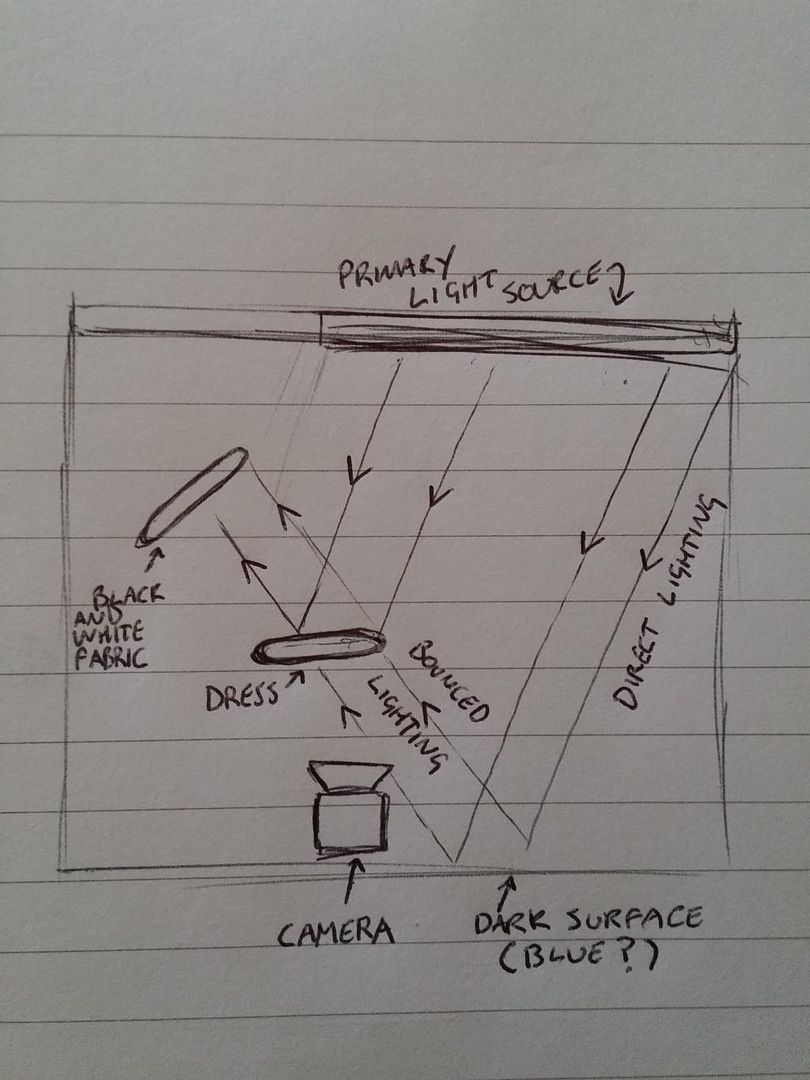 PRIMARY
LIGHT SOURCE
DIRECT LIGHTING
BLACK
AND
WHITE
FABRIC
DRESS
BOUNCED
LIGHTING
CAMERA
DARK SURFACE
(BLUE?)